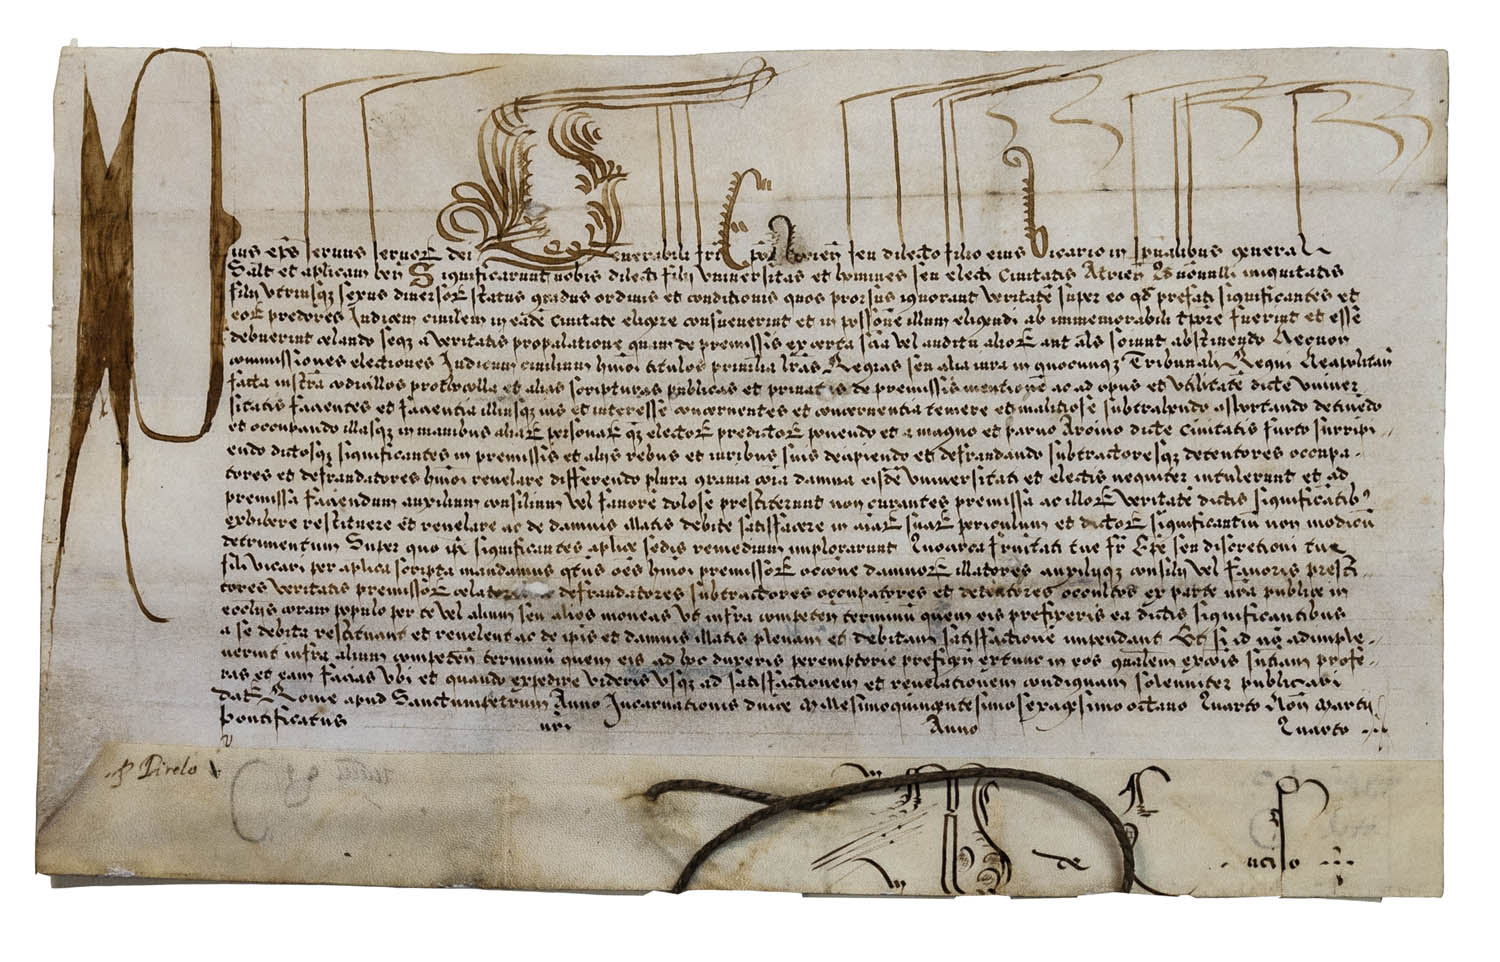 Pius eps servus servor dei Venerabili fri Epo Adrien seu dilecto filio eius Vicario in spualibus general
Salt et aplicam ben Significarunt nobis dilecti filij Universitas et homines seu electi Civitatis Atrien Qd nonnulli iniquitatis
filij utriusqz sexus diversor status gradus ordinis et conditionis quos prorsus ignorant veritate super eo qd prefati significantes et
eor predores Iudicem civilem in eade Civitate eligere consueverint et in possone illum eligendi ab immemorabili tpore fuerint et esse
debuerint celando seqz a veritatis propalatione quam de premissis ex certa scia vel auditu alior aut als sciunt abstinendo Necnon
commissiones electiones Iudicum civilium hmoi titulos privilia lras Regias seu alia iura in quocunqz Tribunali Regni Neapolitan
facta instra codicillos prothocolla et alias scripturas publicas et privatas de premissis mentione ac ad opus et utilitate dicte Univer
sitatis facientes et facientia illiusqz ius et interesse concernentes et concernentia temere et malitiose subtrahendo asportando detinedo
et occupando illasqz in manibus aliar personar qz elector predictor ponendo et a magno et parvo Archivio dicte Civitatis furto surripi-
endo dictosqz significantes in premissis et alijs rebus et iuribus suis decipiendo et defraudando subtractoresqz detentores occupa-
tores et defraudatores hmoi revelare differendo plura gravia coia damna eisde Universitati et electis nequiter intulerunt et ad
premissa faciendum auxilium consilium vel favore dolose prestiterunt non curantes premissa ac illor veritate dictis significatib9
exhibere restituere et revelare ac de damnis illatis debite satisfacere in aiar suar periculum et dictor significantiu non modicu
detrimentum Super quo ipi significantes aplice sedis remedium implorarunt Quocirca fraternitati tue fr Epe seu discretioni tue
fili Vicari per aplica scripta mandamus qtus oes hmoi premissor occone damnor illatores auxilijqz consilij vel favoris presti-
tores veritatis premissor celatores defraudatores subtractores occupatores et detentores occultos ex parte nra publice in
ecclijs coram populo per te vel alium seu alios moneas Ut infra competen terminu quem eis prefixeris ea dictis significantibus
a se debita restituant et revelent ac de ipis et damnis illatis plenam et debitam satisfactione impendant Et si id no adimple-
verint infra alium competen terminu quem eis ad hoc duxeris peremptorie prefigen extunc in eos gnalem excois sntiam profe-
ras et eam facias ubi et quando expedire videris usqz ad satisfactionem et revelationem condignam solenniter publicari
Dat Rome apud Sanctumpetrum Anno Incarnationis dnice Millesimoquingentesimosexagesimo octavo Quarto Non Martij
Pontificatus nri Anno Quarto
de